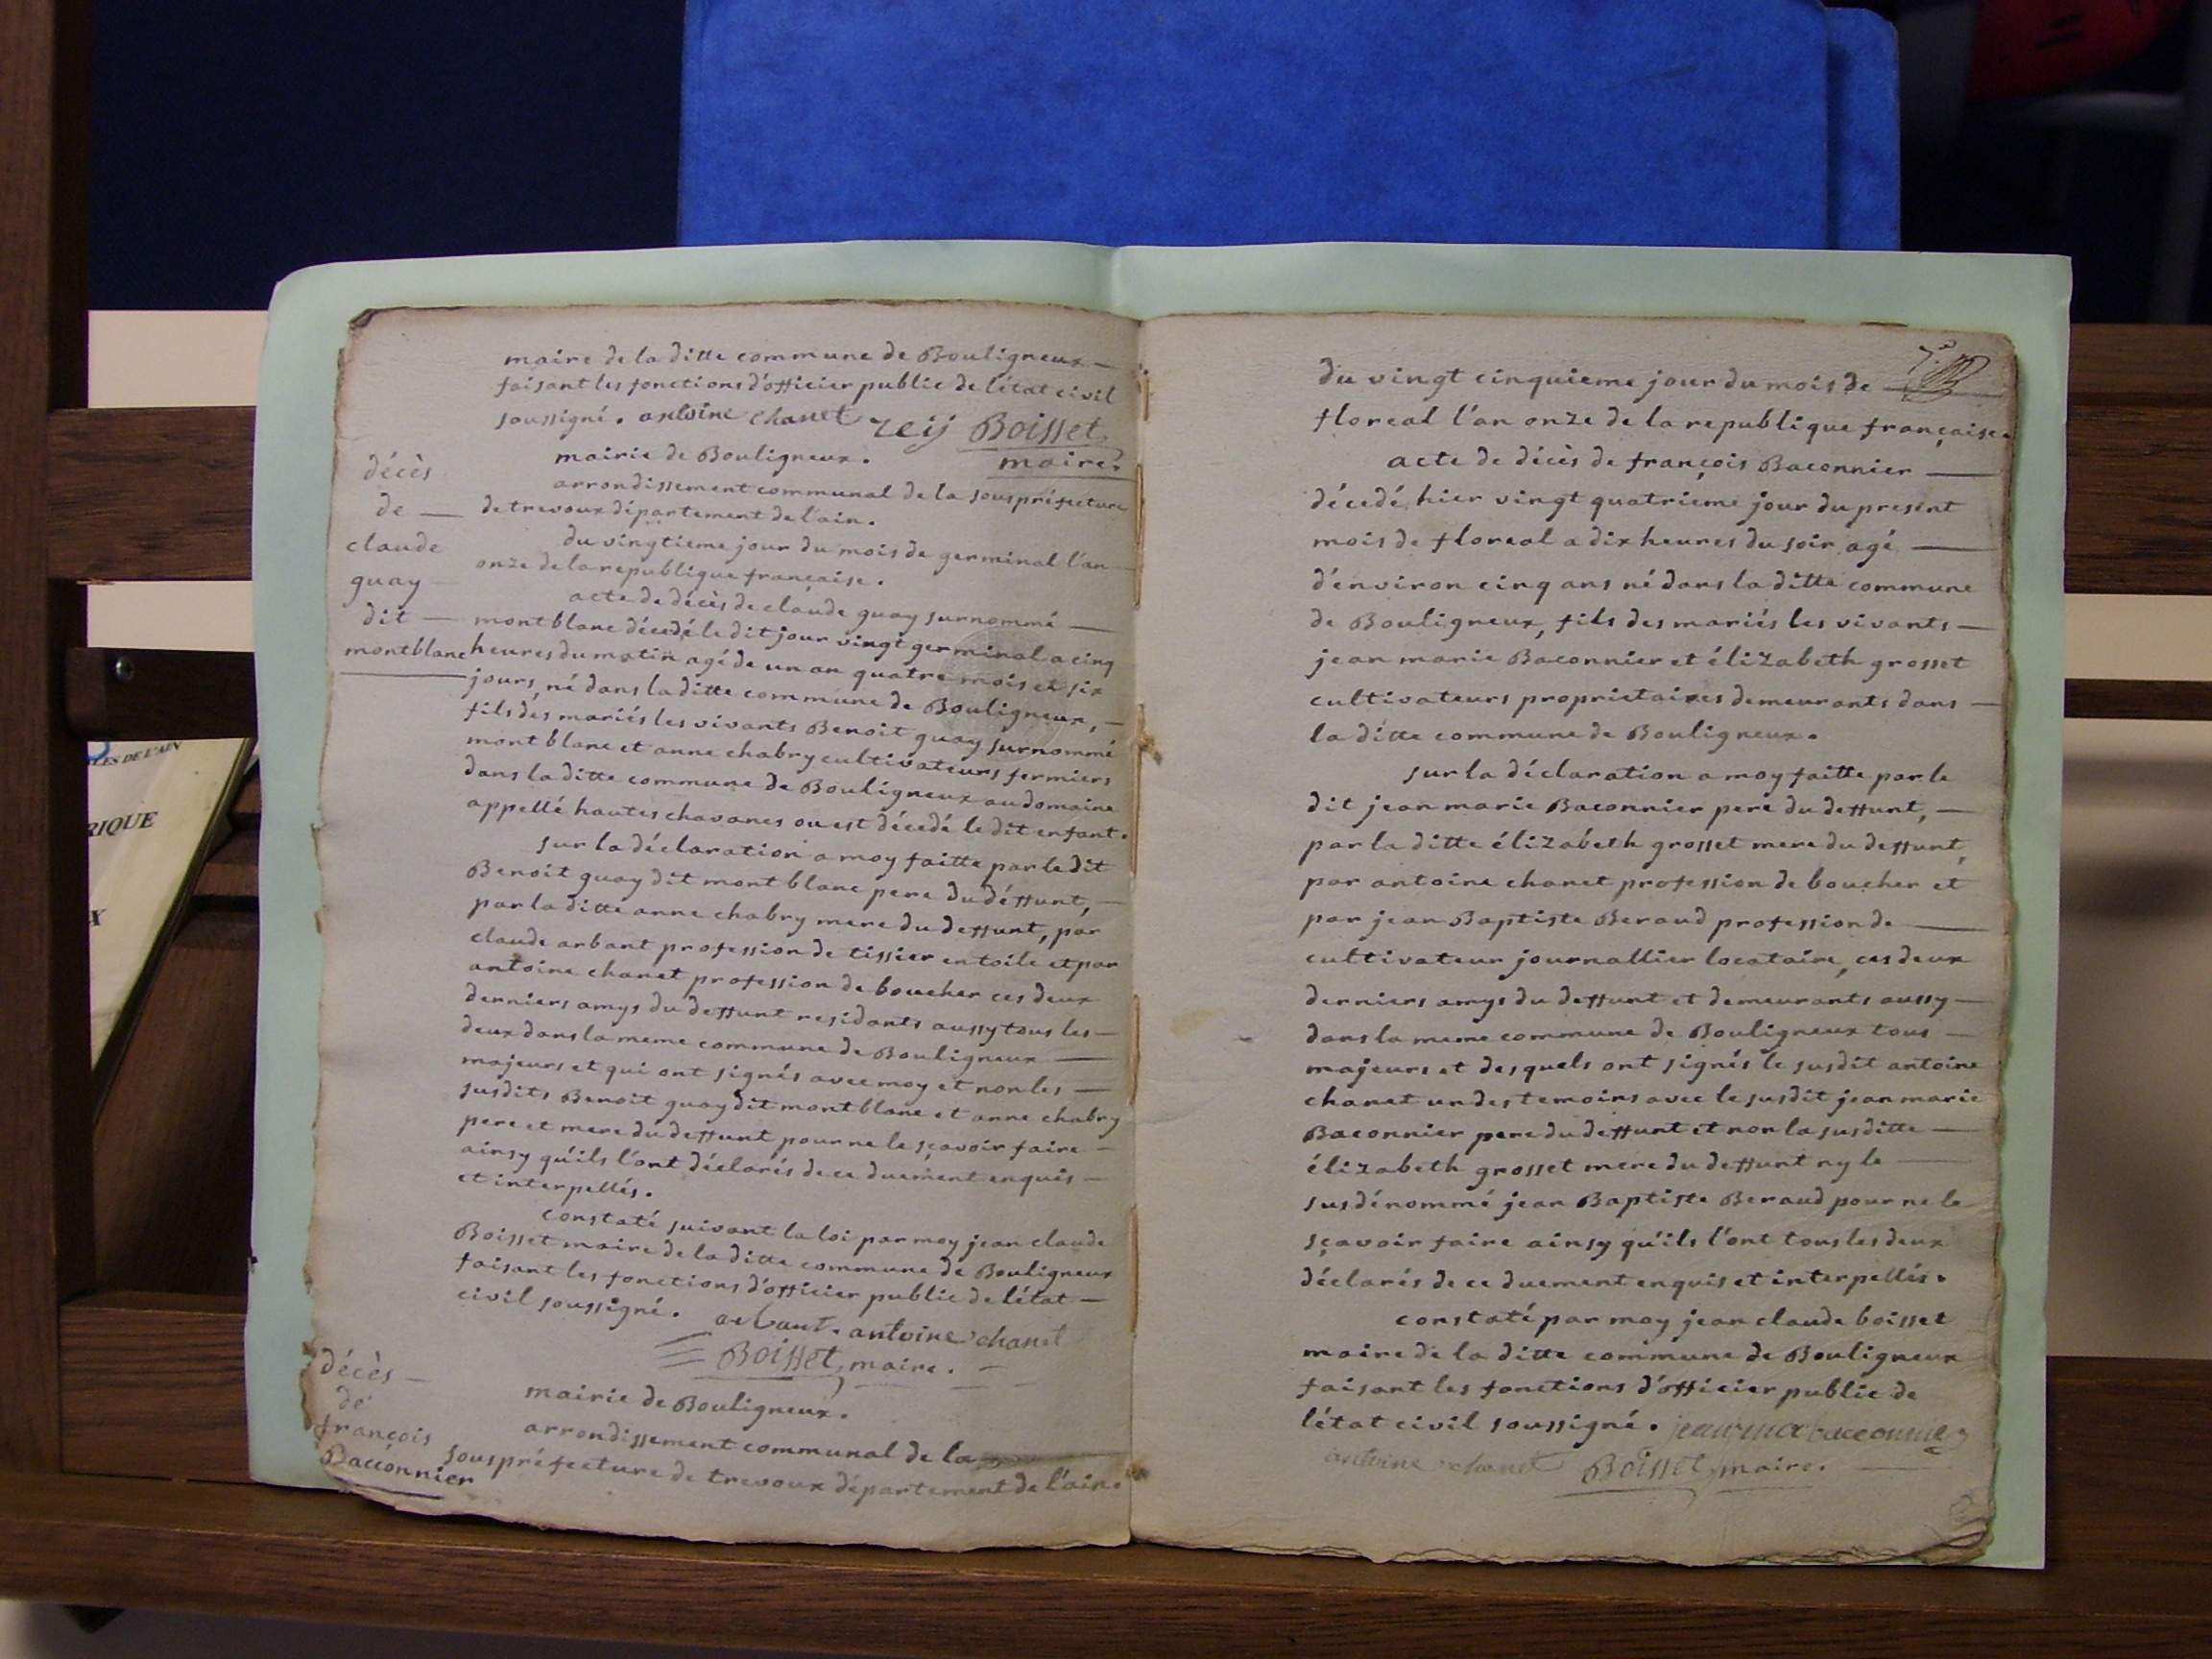 maire de la ditte commune de Bouligneux —
faisant les fonctions d'officier public de l'état civil
soussigné. antoine chanet reij Boisset
maire.
mairie de Bouligneux.
arrondissement communal de la souspréfecture
de trevoux département de l'ain.
décès
de —
claude
guay —
dit —
montblanc
du vingtieme jour du mois de germinal l'an —
onze de la republique française.
acte de décès de claude guay surnommé —
montblanc décedé le dit jour vingt germinal a cinq
heures du matin agé de un an quatre mois et six
jours, né dans la ditte commune de Bouligneux, —
fils des mariés les vivants Benoit guay surnommé
montblanc et anne chabry cultivateurs fermiers
dans la ditte commune de Bouligneux au domaine
appellé hautes chavanes ou est décedé le dit enfant.
sur la déclaration a moy faitte par le dit
Benoit guay dit montblanc pere du déffunt, —
par la ditte anne chabry mere du deffunt, par
claude arbant profession de tissier en toile et par
antoine chanet profession de boucher ces deux
derniers amys du deffunt residants aussy tous les —
deux dans la meme commune de Bouligneux —
majeurs et qui ont signés avec moy et non les —
susdits Benoit guay dit montblanc et anne chabry
pere et mere du deffunt pour ne le sçavoir faire —
ainsy qu'ils l'ont déclarés de ce duement enquis —
et interpellés.
constaté suivant la loi par moy jean claude
Boisset maire de la ditte commune de Bouligneux
faisant les fonctions d'officier public de l'état —
civil soussigné. arbant. antoine chanet
Boisset, maire. —
décès —
de
françois
Baconnier
mairie de Bouligneux.
arrondissement communal de la
souspréfecture de trevoux département de l'ain.
du vingt cinquieme jour du mois de —
floreal l'an onze de la republique française.
acte de décès de françois Baconnier —
décedé hier vingt quatrieme jour du present
mois de floreal a dix heures du soir agé —
d'énviron cinq ans né dans la ditte commune
de Bouligneux, fils des mariés les vivants —
jean marie Baconnier et élizabeth grosset
cultivateurs proprietaires demeurants dans —
la ditte commune de Bouligneux.
sur la déclaration a moy faitte par le
dit jean marie Baconnier pere du deffunt, —
par la ditte élizabeth grosset mere du deffunt,
par antoine chanet profession de boucher et
par jean Baptiste Beraud profession de —
cultivateur journallier locataire, ces deux
derniers amys du deffunt et demeurants aussy —
dans la meme commune de Bouligneux tous —
majeurs et desquels ont signés le susdit antoine
chanet un des temoins avec le susdit jean marie
Baconnier pere du deffunt et non la susditte —
élizabeth grosset mere du deffunt ny le —
susdénommé jean Baptiste Beraud pour ne le
sçavoir faire ainsy qu'ils l'ont tous les deux
déclarés de ce duement enquis et interpellés.
constaté par moy jean claude boisset
maire de la ditte commune de Bouligneux
faisant les fonctions d'officier public de
l'état civil soussigné.
antoine chanet Boisset, maire. —
RIQUE